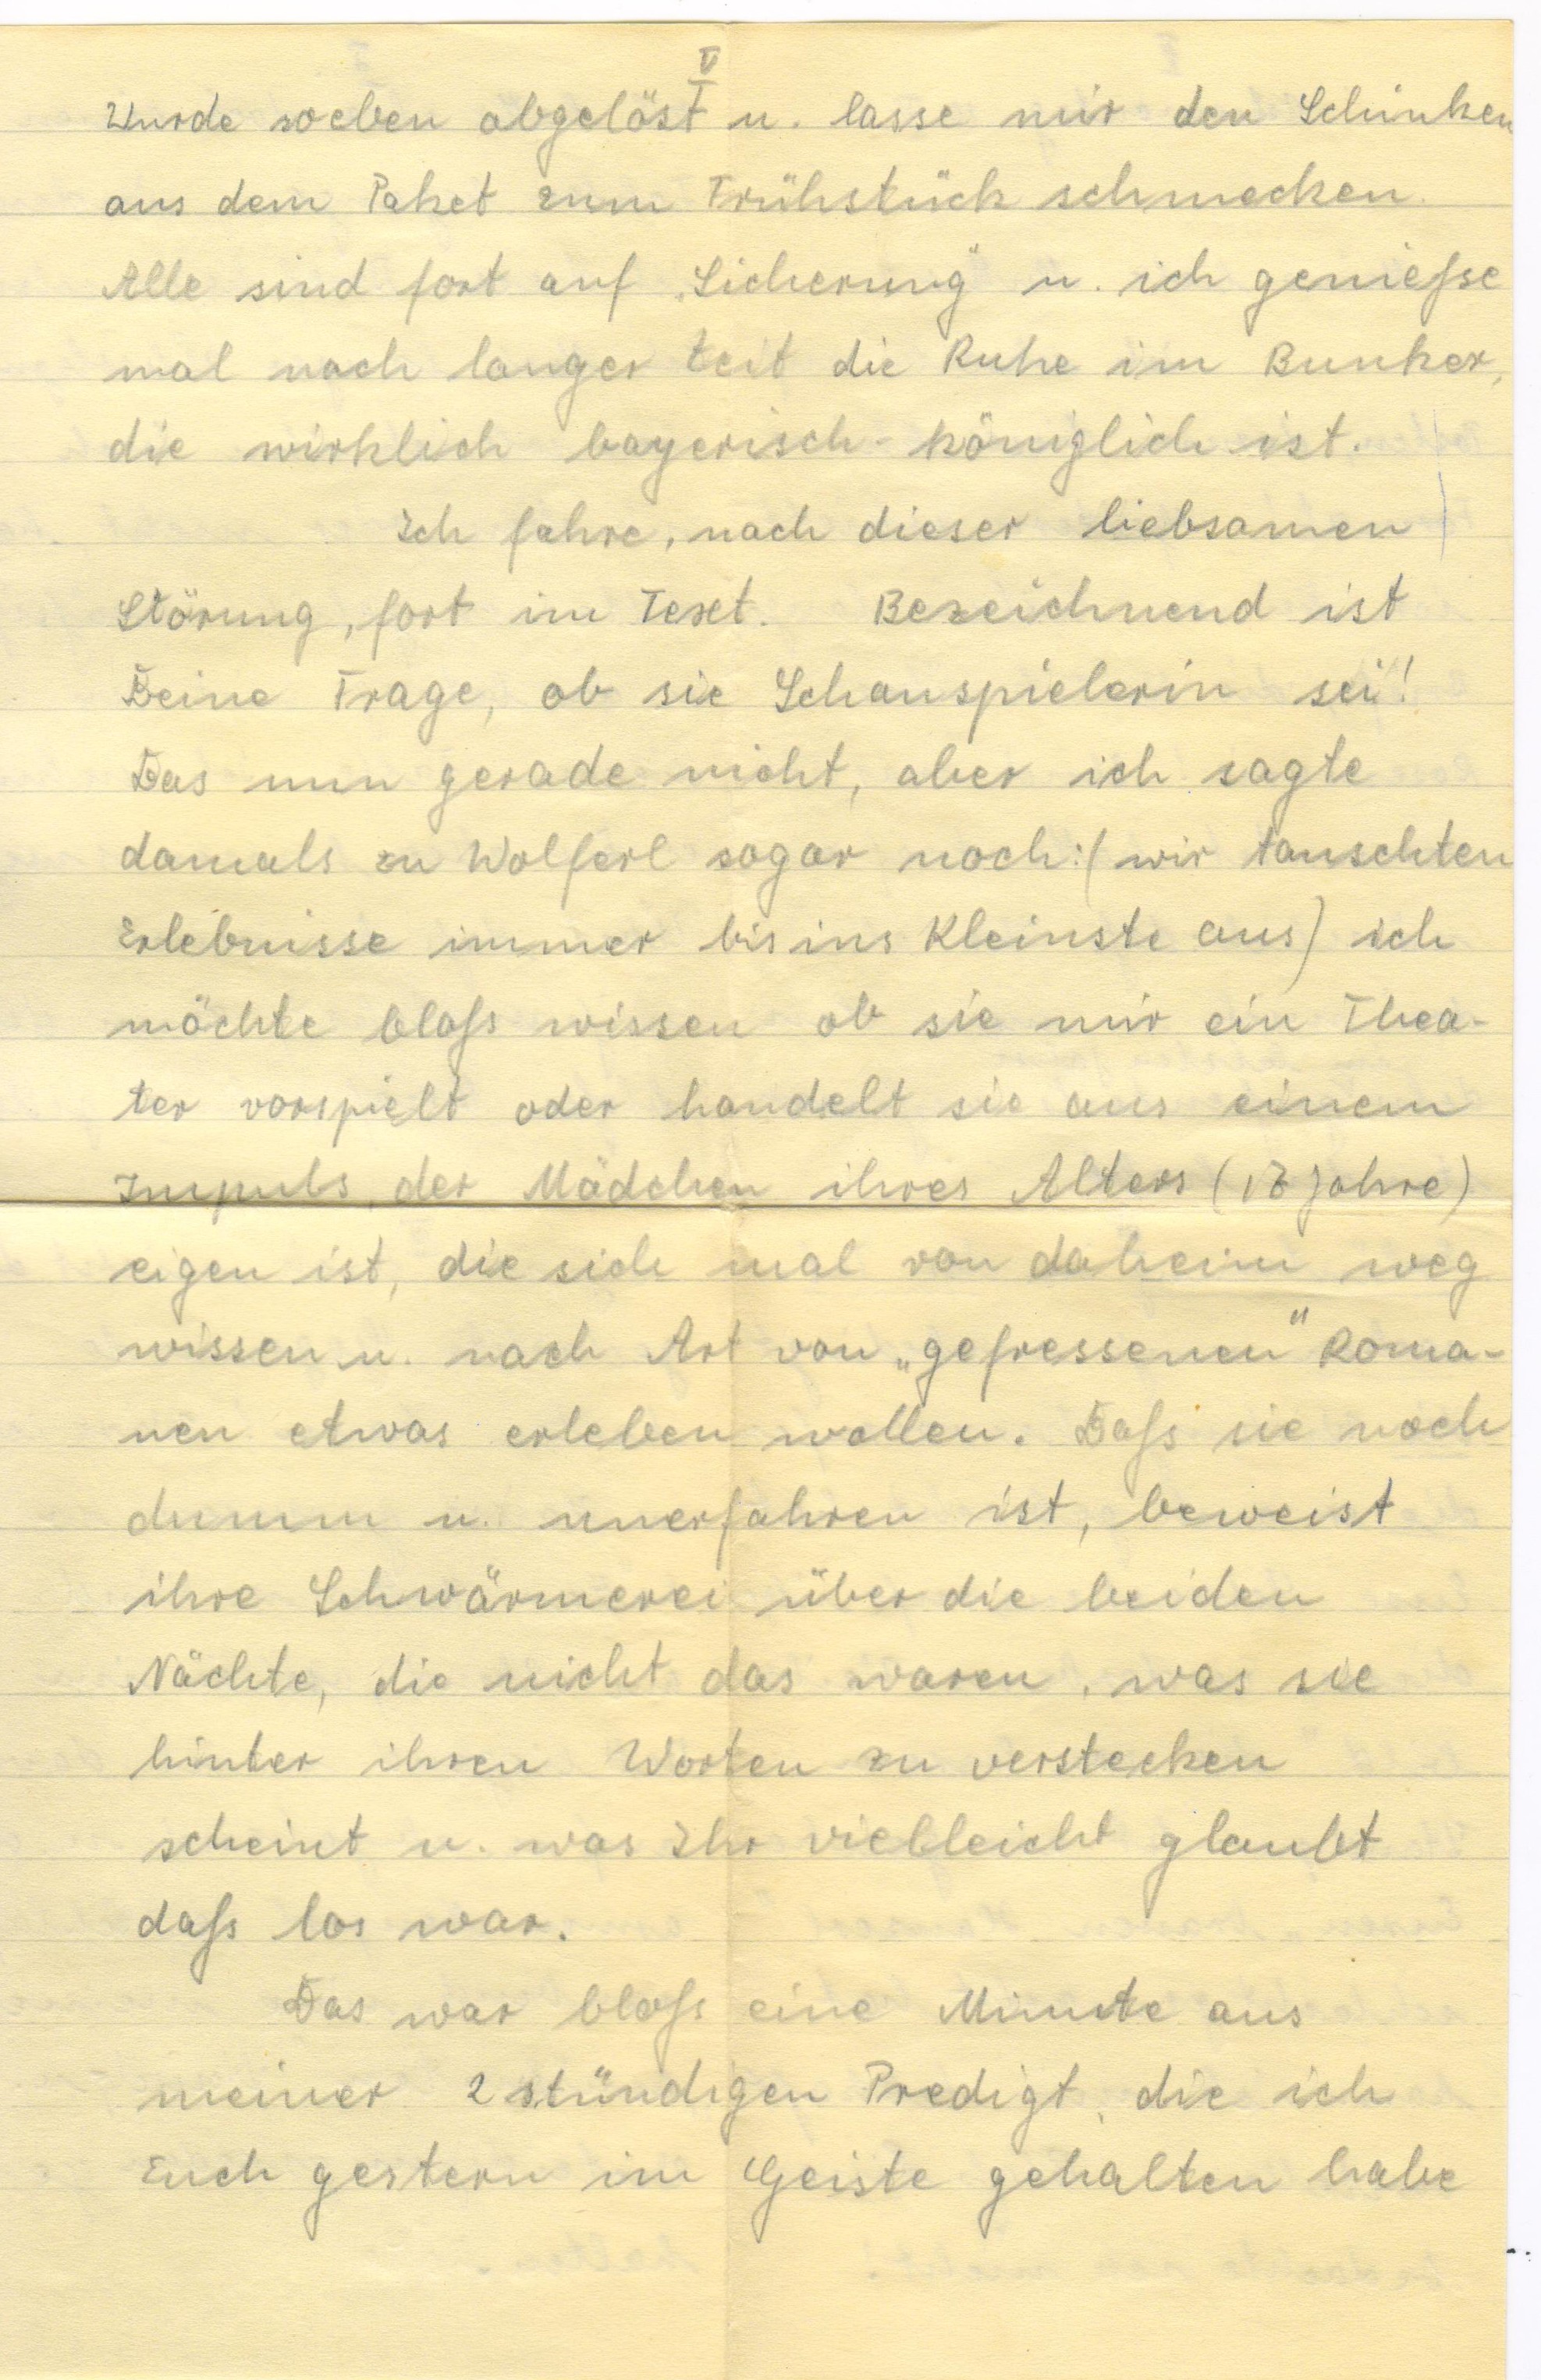 V
Wurde soeben abgelöst u. lasse mir den Schinken
aus dem Paket zum Frühstück schmecken.
Alle sind fort auf „Sicherung" u. ich genieße
mal nach langer Zeit die Ruhe im Bunker,
die wirklich bayerisch-königlich ist.
Ich fahre, nach dieser liebsamen
Störung, fort im Text. Bezeichnend ist
Deine Frage, ob sie Schauspielerin sei!
Das nun gerade nicht, aber ich sagte
damals zu Wolferl sogar noch: (wir tauschten
Erlebnisse immer bis ins Kleinste aus) ich
möchte bloß wissen ob sie mir ein Thea-
ter vorspielt oder handelt sie aus einem
Impuls, der Mädchen ihres Alters ( Jahre)
eigen ist, die sich mal von daheim weg
wissen u. nach Art von „gefressenen" Roma-
nen etwas erleben wollen. Daß sie noch
dumm u. unerfahren ist, beweist
ihre Schwärmerei über die beiden
Nächte, die nicht das waren, was sie
hinter ihren Worten zu verstecken
scheint u. was Ihr vielleicht glaubt
daß los war.
Das war bloß eine Minute aus
meiner 2 stündigen Predigt, die ich
Euch gestern im Geiste gehalten habe